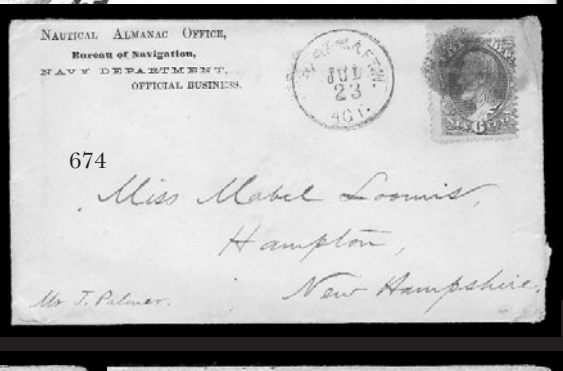 NAUTICAL ALMANAC OFFICE,
Bureau of Navigation,
NAVY DEPARTMENT.
OFFICIAL BUSINESS.
JUL
23
674
Miss Mabel Loomis,
Hampton,
New Hampshire.
Mr J. Palmer.